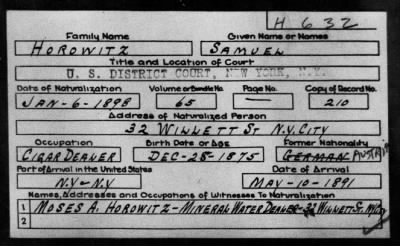 H 632
Family Name Given Name or Names
HOROWITZ SAMUEL
Title and Location of Court
U. S. DISTRICT COURT, NEW YORK, N.Y.
Date of Naturalization Volume or Bundle No. Page No. Copy of Record No.
JAN-6-1898 65 — 210
Address of Naturalized Person
32 WILLETT ST N.Y. CITY
Occupation Birth Date or Age Former Nationality
CIGAR DEALER DEC-28-1875 GERMAN AUSTRIA
Port of Arrival in the United States Date of Arrival
N.Y-N.Y MAY-10-1891
Names, Addresses and Occupations of Witnesses To Naturalization
1 MOSES A. HOROWITZ-MINERAL WATER DEALER-32 WILLETT ST. N.Y.C.
2